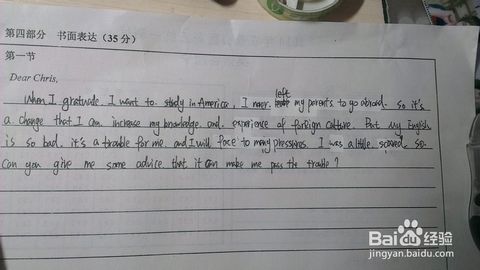 第四部分 书面表达（35分）
第一节
Dear Chris,
When I gratuate. I want to study in America, I never left my parents to go abroad. so it's
a change that I can increase my knowledge and experience of foreign culture. But my English
is so bad. it's a trouble for me. and I will face to many pressures. I was a little scared. so
Can you give me some advice that it can make me pass the trouble?
Baidu经验
jingyan.baidu.com